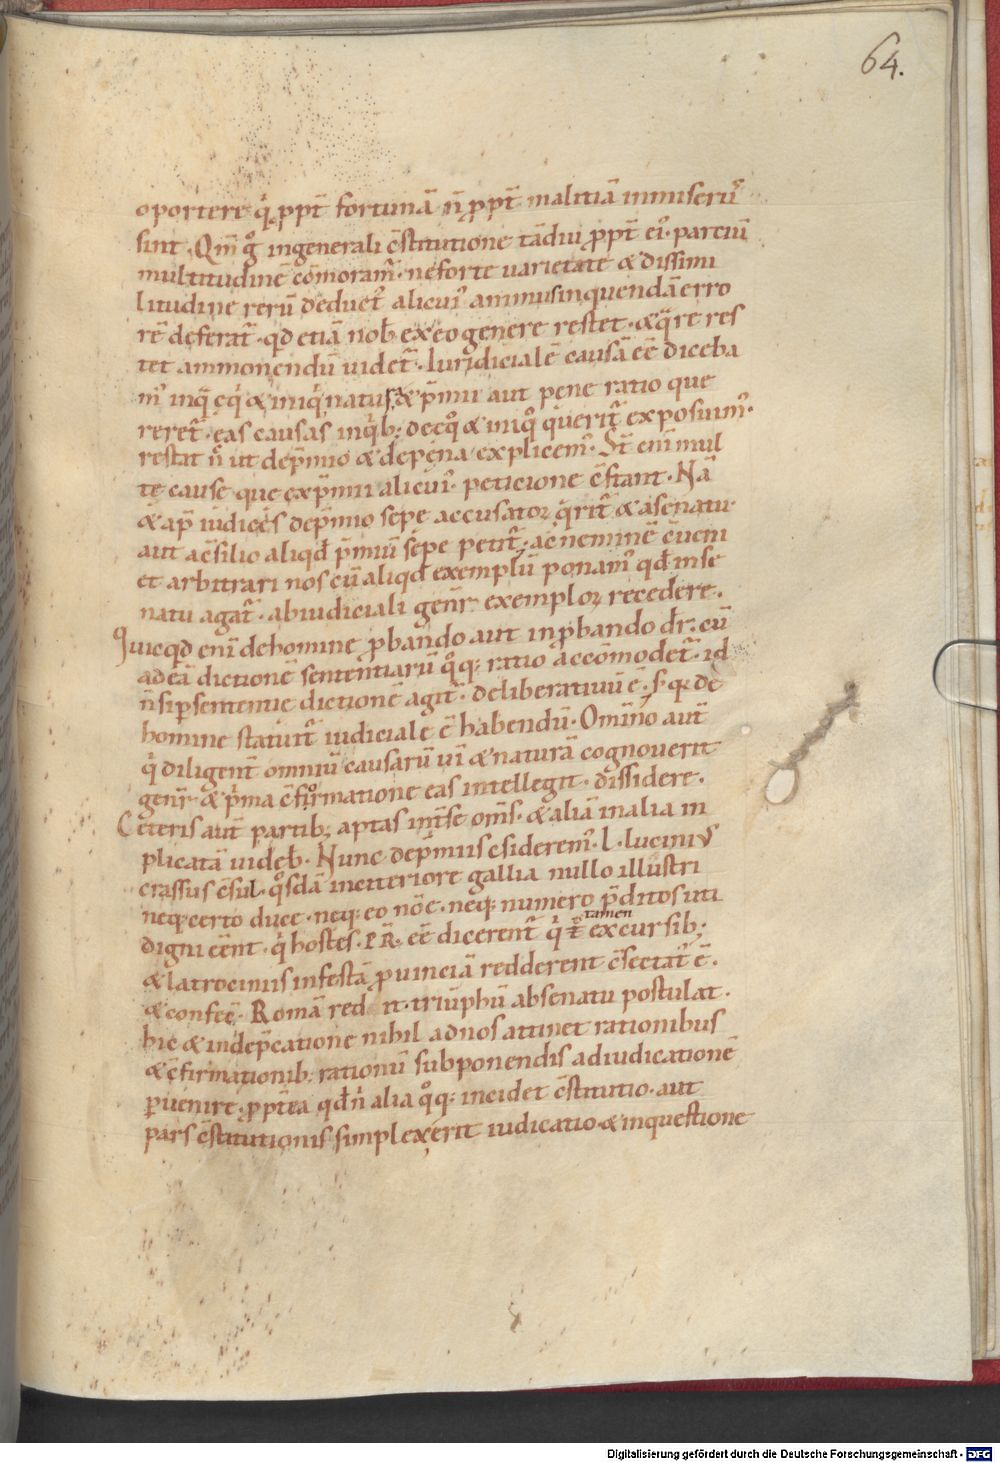 64.
oportere q͛ ꝓpt̄ fortunā n̄ ꝓpt̄ malitiā inmiserıı̄
sint. Qm̄ gͦ ingenerali c̄stitutione tādiu ꝓpt̄ ei᾽ partiū
multitudinē cōmoram᾽. neforte uarietate & dissimi
litudine rerū deduct᾽ alicui᾽ animusinquendāerro
rē deferat᾽. qd etiā nob̄ exeogenere restet. &q̄re res
tet ammonendū uidet᾽. Iuridicialē causā eē diceba
m᾽ inq̄ ęq͛ & iniq͛ natus & p̄mii aut pene ratio que
reret᾽. eas causas inq͛b; deęqͦ & iniqͦ querit᾽ exposuim᾽.
restat n̄ ut dep̄mio & depęna explicem᾽. St̄ eni mul
te cause que exp̄mii alicui᾽ peticione c̄stant. Nā
& ap̄ iudicęs dep̄mio sepe accusatoꝝ q͛rit᾽ & asenatu
aut ac̄silio aliqd̄ p̄miū sępe petit᾽. ac neminē c̄ueni
et arbitrari nos cū aliqd̄ exemplū ponam᾽ qd̄ inse
natu agat᾽. abiudiciali geñr exemploꝝ recedere.
Quicqd enī dehomine ꝓbando aut inꝓbando dr̄. cū
adeā dictionē sententiarū qͦq; ratio accōmodet᾽. id
n̄sip̱sententie dictionē agit᾽. deliberatiuū ē. s; q; de
homine statuit᾽ iudiciale ē habendū. Omīno aut̄
q͛ diligent̄ omniū causarū uī & naturā cognouerit
geñr & p̄ma c̄formatione eas intellegit. dissidere.
Ceteris aut̄ partib; aptas int̄se om̄s. & aliā inalia in
plicatā uideb̄. Nunc dep̄miis c̄siderem᾽. L. lucinius
crassus c̄sul. qͦsdā inciteriore gallia nullo illustri
neq; certo duce. neq; eo nōe. neq; numero p̄ditos uti
digni eēnt. q͛ hostes. P.R. eē dicerent᾽ q͛ t̄ tamen excursib;
& latrociniis infestā ꝓuinciā redderent c̄sectat᾽ ē.
& confec̄. Romā red it. triūphū absenatu postulat.
hic & indep̄catione nihil adnos attinet rationibus
& c̄firmationib; rationū subponendis adiudicationē
p̱uenire. ꝓpt̄ea qd̄n͛ alia qͦq; incidet c̄stitutio. aut
pars c̄stitutionis simplex erit iudicatio & inquestione
Digitalisierung gefördert durch die Deutsche Forschungsgemeinschaft - DFG